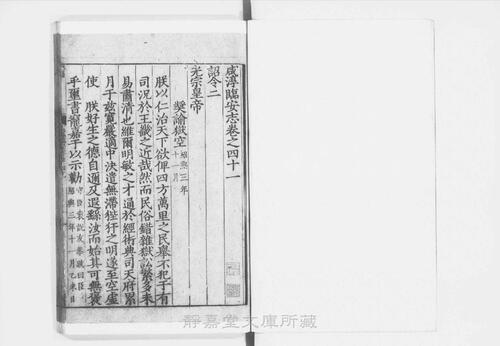 咸淳臨安志卷之四十一
詔令二
光宗皇帝
獎諭獄空紹熙三年十一月
朕以仁治天下欲俾四方萬里之民舉不犯于有
司況於王畿之近哉然而民俗錯雜獄訟繁多未
易肅清也維爾明敏之才通於經術典司天府累
月于茲寬嚴適中決遣無滯狴犴之明遂至空虛
使 朕好生之德自邇及遐繇汝而始其可無褒
乎璽書寵嘉于以示勸
靜嘉堂文庫所藏